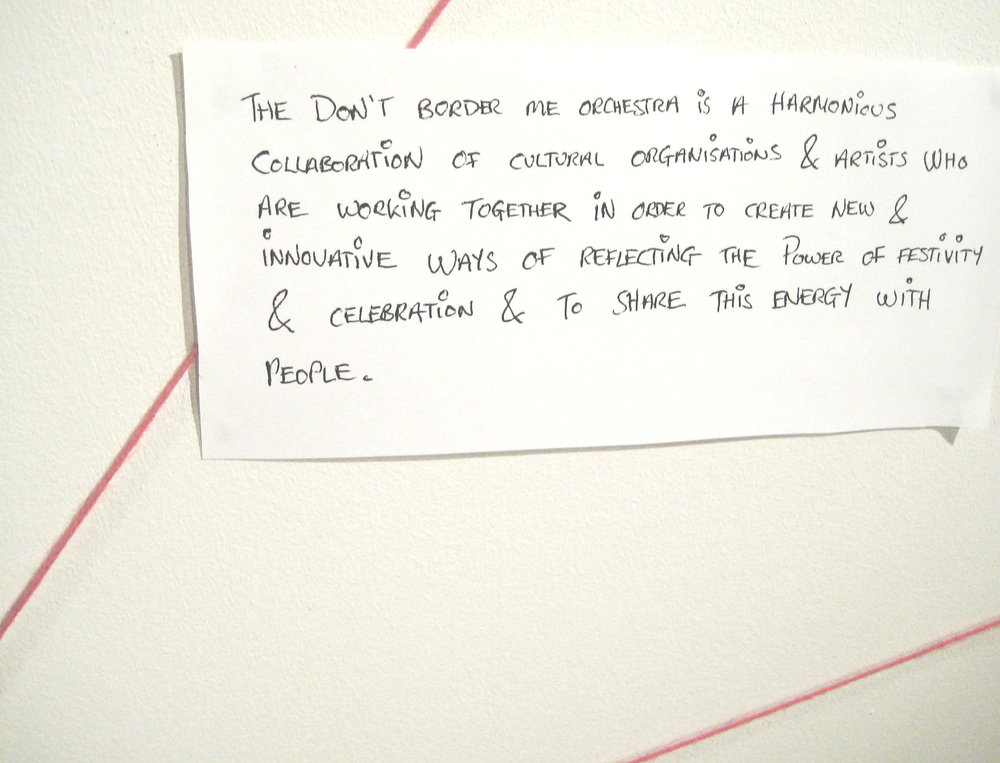 THE DON'T BORDER ME ORCHESTRA iS A HARMONiOUS
COLLABORATiON OF CULTURAL ORGANiSATiONS & ARTiSTS WHO
ARE WORKiNG TOGETHER iN ORDER TO CREATE NEW &
iNNOVATiVE WAYS OF REFLECTiNG THE POWER OF FESTiViTY
& CELEBRATiON & TO SHARE THiS ENERGY WiTH
PEOPLE.